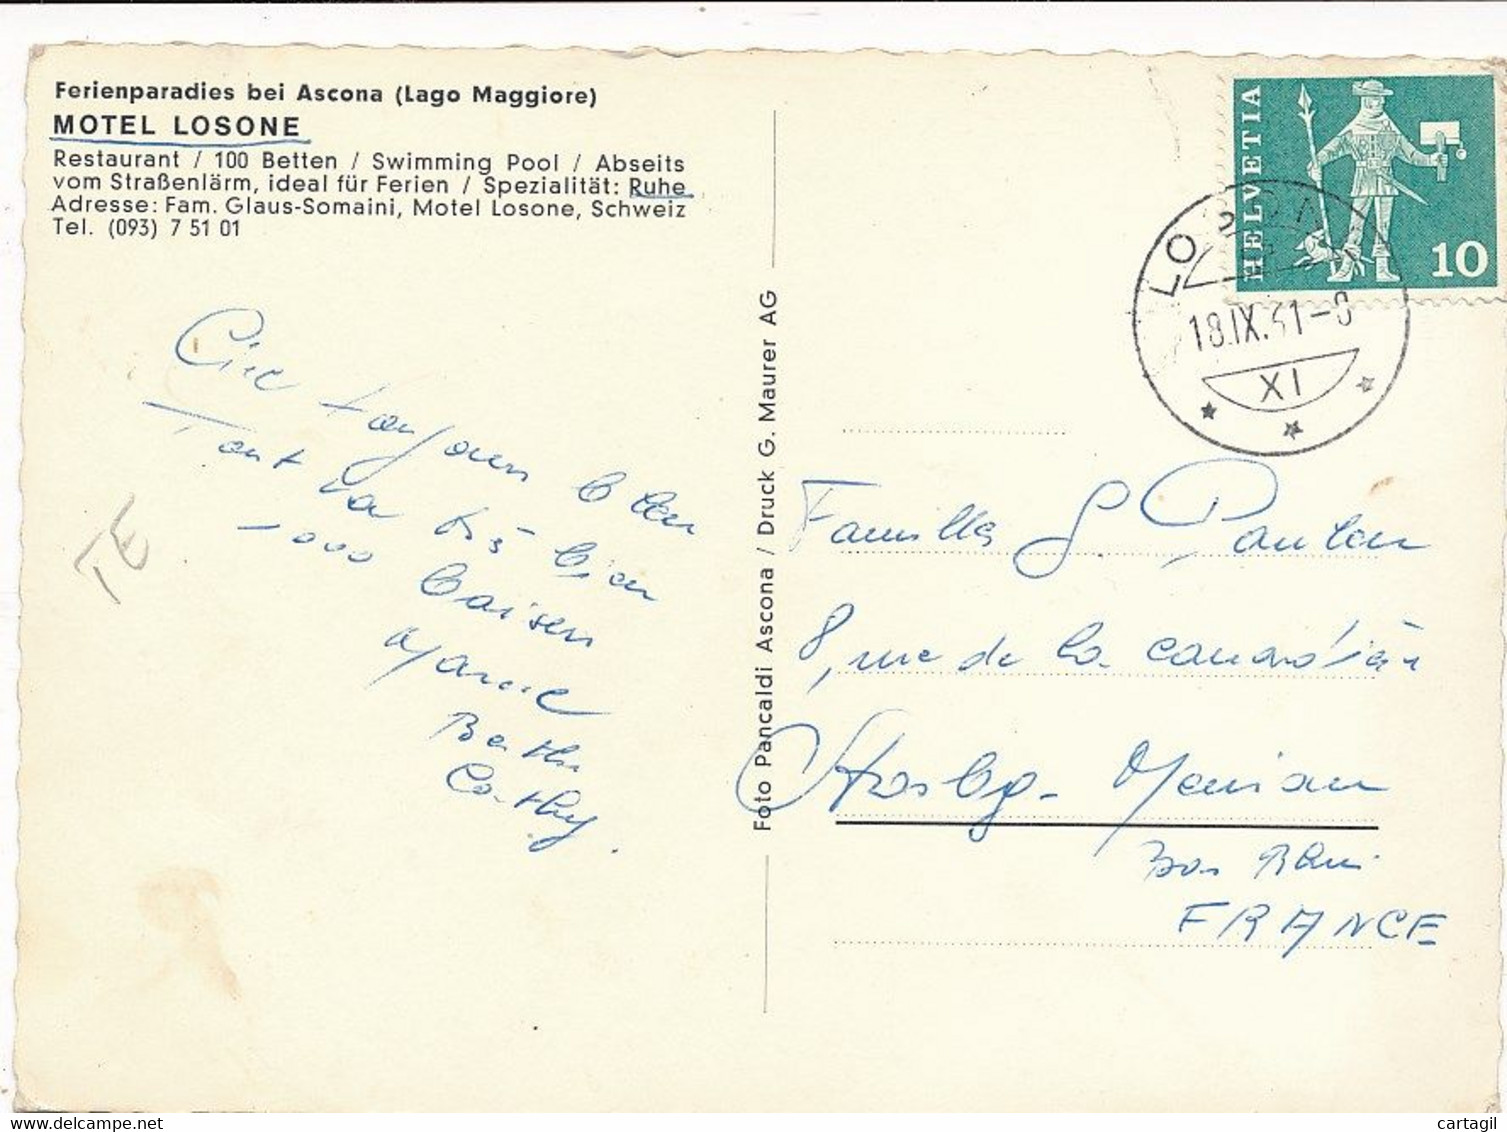 Ferienparadies bei Ascona (Lago Maggiore)
MOTEL LOSONE
Restaurant / 100 Betten / Swimming Pool / Abseits
vom Straßenlärm, ideal für Ferien / Spezialität: Ruhe
Adresse: Fam. Glaus-Somaini, Motel Losone, Schweiz
Tel. (093) 7 51 01
Ciel toujours bleu
Tout va très bien
1000 baisers
Mamie
Berthe
Cathy.
TE
Foto Pancaldi Ascona / Druck G. Maurer AG
HELVETIA
10
LOSONE
18.IX.61-
XI
Famille G.
8, rue de la canardière
Strasbg- Meinau
Bas Rhin
FRANCE
cartagil